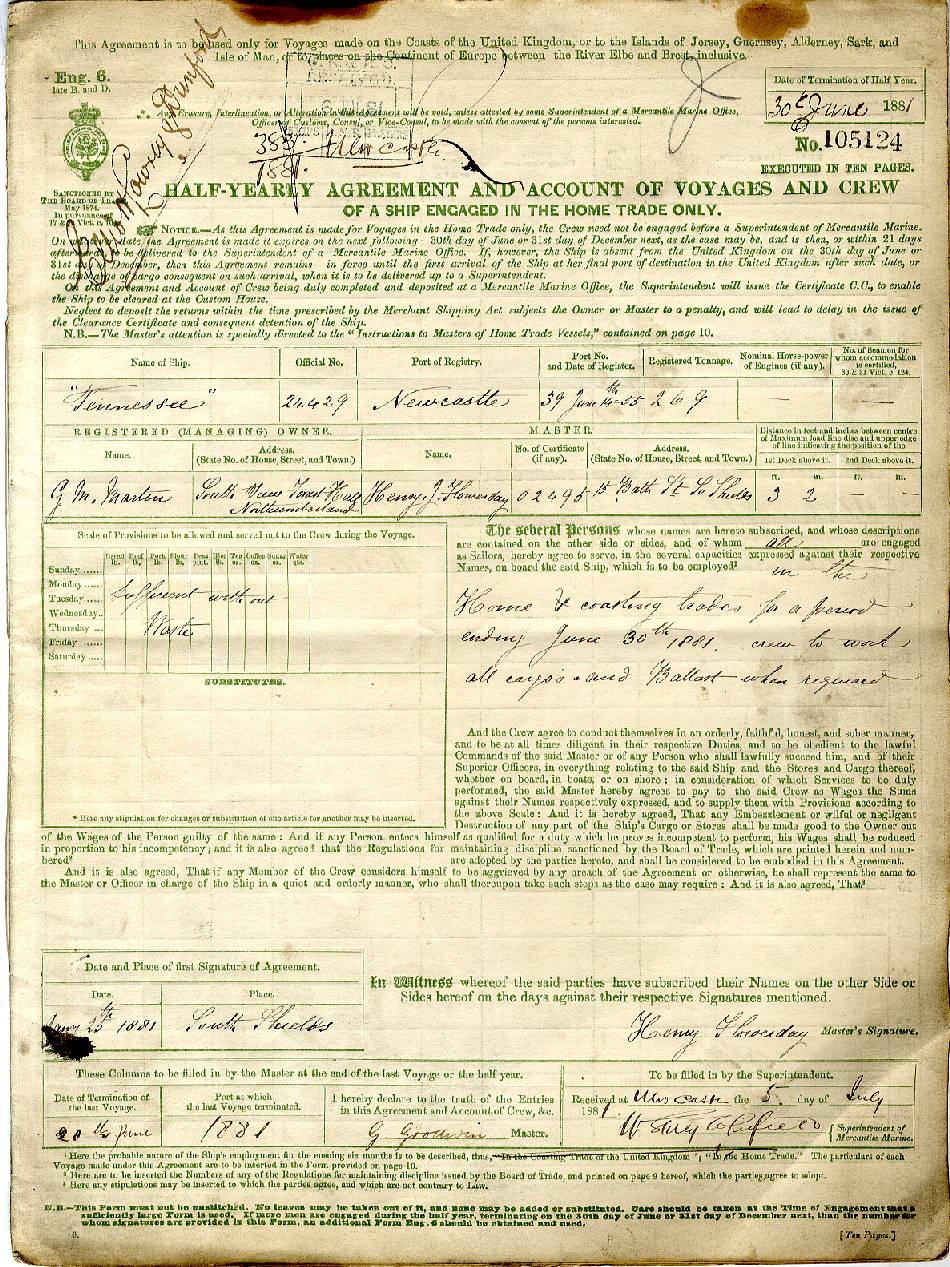 This Agreement is to be used only for Voyages made on the Coasts of the United Kingdom, or to the Islands of Jersey, Guernsey, Alderney, Sark, and
Isle of Man, or to places on the Continent of Europe between the River Elbe and Brest, inclusive.
Eng. 6.
late B. and D.
Date of Termination of Half Year.
30th June 1881
Any Erasure, Interlineation, or Alteration in this Agreement will be void, unless attested by some Superintendent of a Mercantile Marine Office,
Officer of Customs, Consul, or Vice-Consul, to be made with the consent of the persons interested.
No. 105124
EXECUTED IN TEN PAGES.
383
1881
Newcastle
SANCTIONED BY
THE BOARD OF TRADE
May 1874.
In pursuance of
HALF-YEARLY AGREEMENT AND ACCOUNT OF VOYAGES AND CREW
OF A SHIP ENGAGED IN THE HOME TRADE ONLY.
NOTICE.—As this Agreement is made for Voyages in the Home Trade only, the Crew need not be engaged before a Superintendent of Mercantile Marine.
On whatever date the Agreement is made it expires on the next following 30th day of June or 31st day of December next, as the case may be, and is then, or within 21 days
after, to be delivered to the Superintendent of a Mercantile Marine Office. If, however, the Ship is absent from the United Kingdom on the 30th day of June or
31st of December, then this Agreement remains in force until the first arrival of the Ship at her final port of destination in the United Kingdom after such date, or
the discharge of cargo consequent on such arrival, when it is to be delivered up to a Superintendent.
On this Agreement and Account of Crew being duly completed and deposited at a Mercantile Marine Office, the Superintendent will issue the Certificate C.C., to enable
the Ship to be cleared at the Custom House.
Neglect to deposit the returns within the time prescribed by the Merchant Shipping Act subjects the Owner or Master to a penalty, and will lead to delay in the issue of
the Clearance Certificate and consequent detention of the Ship.
N.B.—The Master's attention is specially directed to the "Instructions to Masters of Home Trade Vessels," contained on page 10.
Name of Ship. Official No. Port of Registry. Port No. and Date of Register. Registered Tonnage. Nominal Horse-power of Engines (if any). No. of Seamen for whom accommodation is certified, 30 & 31 Vict. c. 124.
"Tennessee" 24429 Newcastle 39 June 14th-55 269 — —
REGISTERED (MANAGING) OWNER. MASTER. Distance in feet and inches between centre of Maximum load line disc and upper edge of line indicating the position of the
Name. Address. (State No. of House, Street, and Town.) Name. No. of Certificate (if any). Address. (State No. of House, Street, and Town.) 1st Deck above it. 2nd Deck above it.
ft. in. ft. in.
G. M. Marten South View Forest Hall Northumberland Henry J. 02495 15 Bath St So Shields 3 2 — —
Scale of Provisions to be allowed and served out to the Crew during the Voyage.
Bread lb. Beef lb. Pork lb. Flour lb. Peas pint. Rice lb. Tea oz. Coffee oz. Sugar oz. Water qts.
Sunday
Monday
Tuesday
Wednesday
Thursday
Friday
Saturday
Sufficient without
Waste
SUBSTITUTES.
* Here any stipulation for changes or substitution of one article for another may be inserted.
The several Persons whose names are hereto subscribed, and whose descriptions
are contained on the other side or sides, and of whom all are engaged
as Sailors, hereby agree to serve, in the several capacities expressed against their respective
Names, on board the said Ship, which is to be employed¹ in the
Home & coasting trades for a period
ending June 30th 1881. crew to work
all cargos and Ballast when required
And the Crew agree to conduct themselves in an orderly, faithful, honest, and sober manner,
and to be at all times diligent in their respective Duties, and to be obedient to the lawful
Commands of the said Master or of any Person who shall lawfully succeed him, and of their
Superior Officers, in everything relating to the said Ship and the Stores and Cargo thereof,
whether on board, in boats, or on shore : in consideration of which Services to be duly
performed, the said Master hereby agrees to pay to the said Crew as Wages the Sums
against their Names respectively expressed, and to supply them with Provisions according to
the above Scale : And it is hereby agreed, That any Embezzlement or wilful or negligent
Destruction of any part of the Ship's Cargo or Stores shall be made good to the Owner out
of the Wages of the Person guilty of the same : And if any Person enters himself as qualified for a duty which he proves incompetent to perform, his Wages shall be reduced
in proportion to his incompetency; and it is also agreed that the Regulations for maintaining discipline sanctioned by the Board of Trade, which are printed herein and num-
bered² are adopted by the parties hereto, and shall be considered to be embodied in this Agreement.
And it is also agreed, That if any Member of the Crew considers himself to be aggrieved by any breach of the Agreement or otherwise, he shall represent the same to
the Master or Officer in charge of the Ship in a quiet and orderly manner, who shall thereupon take such steps as the case may require : And it is also agreed, That³
Date and Place of first Signature of Agreement.
Date. Place.
25th 1881 South Shields
In Witness whereof the said parties have subscribed their Names on the other Side or
Sides hereof on the days against their respective Signatures mentioned.
Henry Master's Signature.
These Columns to be filled in by the Master at the end of the last Voyage or the half year.
Date of Termination of the last Voyage. Port at which the last Voyage terminated.
June 1881
I hereby declare to the truth of the Entries
in this Agreement and Account of Crew, &c.
G Goodwin Master.
To be filled in by the Superintendent.
Received at Newcastle the 5. day of July
1881
Superintendent of Mercantile Marine.
¹ Here the probable nature of the Ship's employment for the ensuing six months is to be described, thus, "In the Coasting Trade of the United Kingdom"; "In the Home Trade." The particulars of each
Voyage made under this Agreement are to be inserted in the Form provided on page 10.
² Here are to be inserted the Numbers of any of the Regulations for maintaining discipline issued by the Board of Trade, and printed on page 9 hereof, which the parties agree to adopt.
³ Here any stipulations may be inserted to which the parties agree, and which are not contrary to Law.
N.B.—This Form must not be unstitched. No leaves may be taken out of it, and none may be added or substituted. Care should be taken at the Time of Engagement that a
sufficiently large Form is used. If more men are engaged during the half year, terminating on the 30th day of June or 31st day of December next, than the number for
whom signatures are provided in this Form, an additional Form Eng. 6 should be obtained and used.
[Ten Pages.]